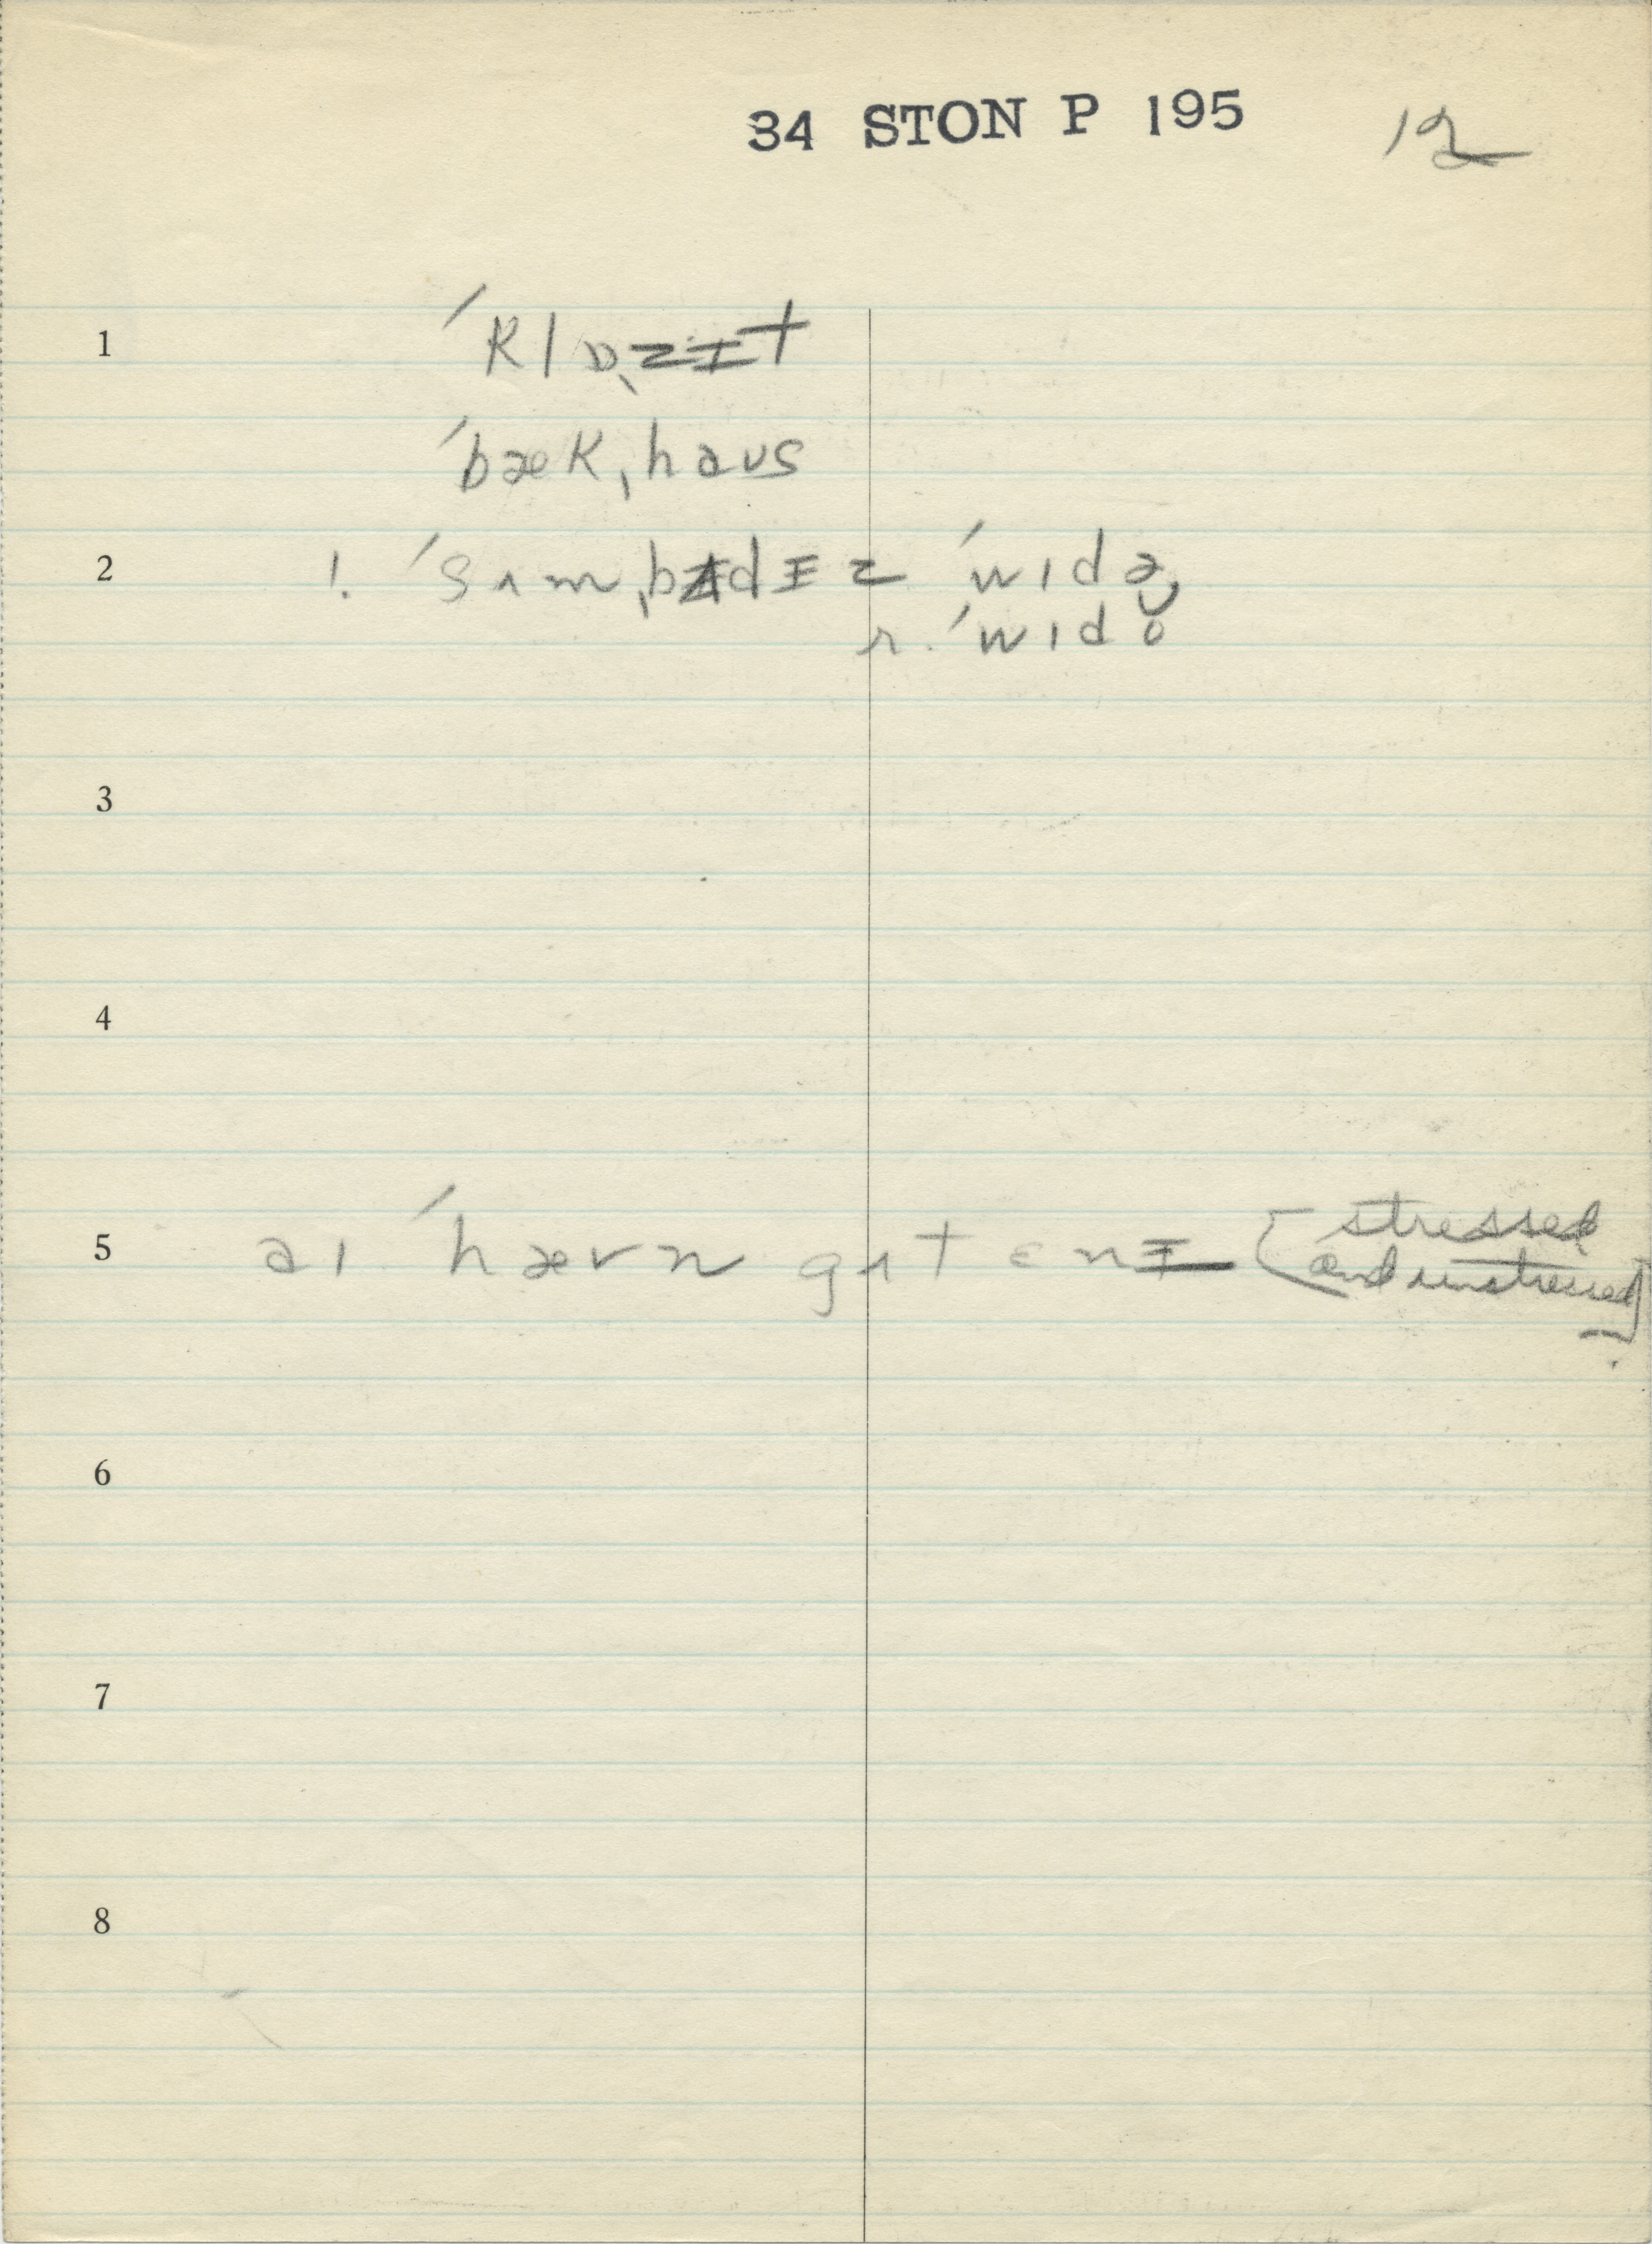 34 STON P 195 12
1 ˈklɒˌzɨt
ˈbækˌhaʊs
2 ! ˈsʌmˌbʌdɨz ˈwɪdə
r. ˈwɪdo
3
4
5 aɪ ˈhævn gɑt ɛnɨ [stressed
and unstressed]
6
7
8